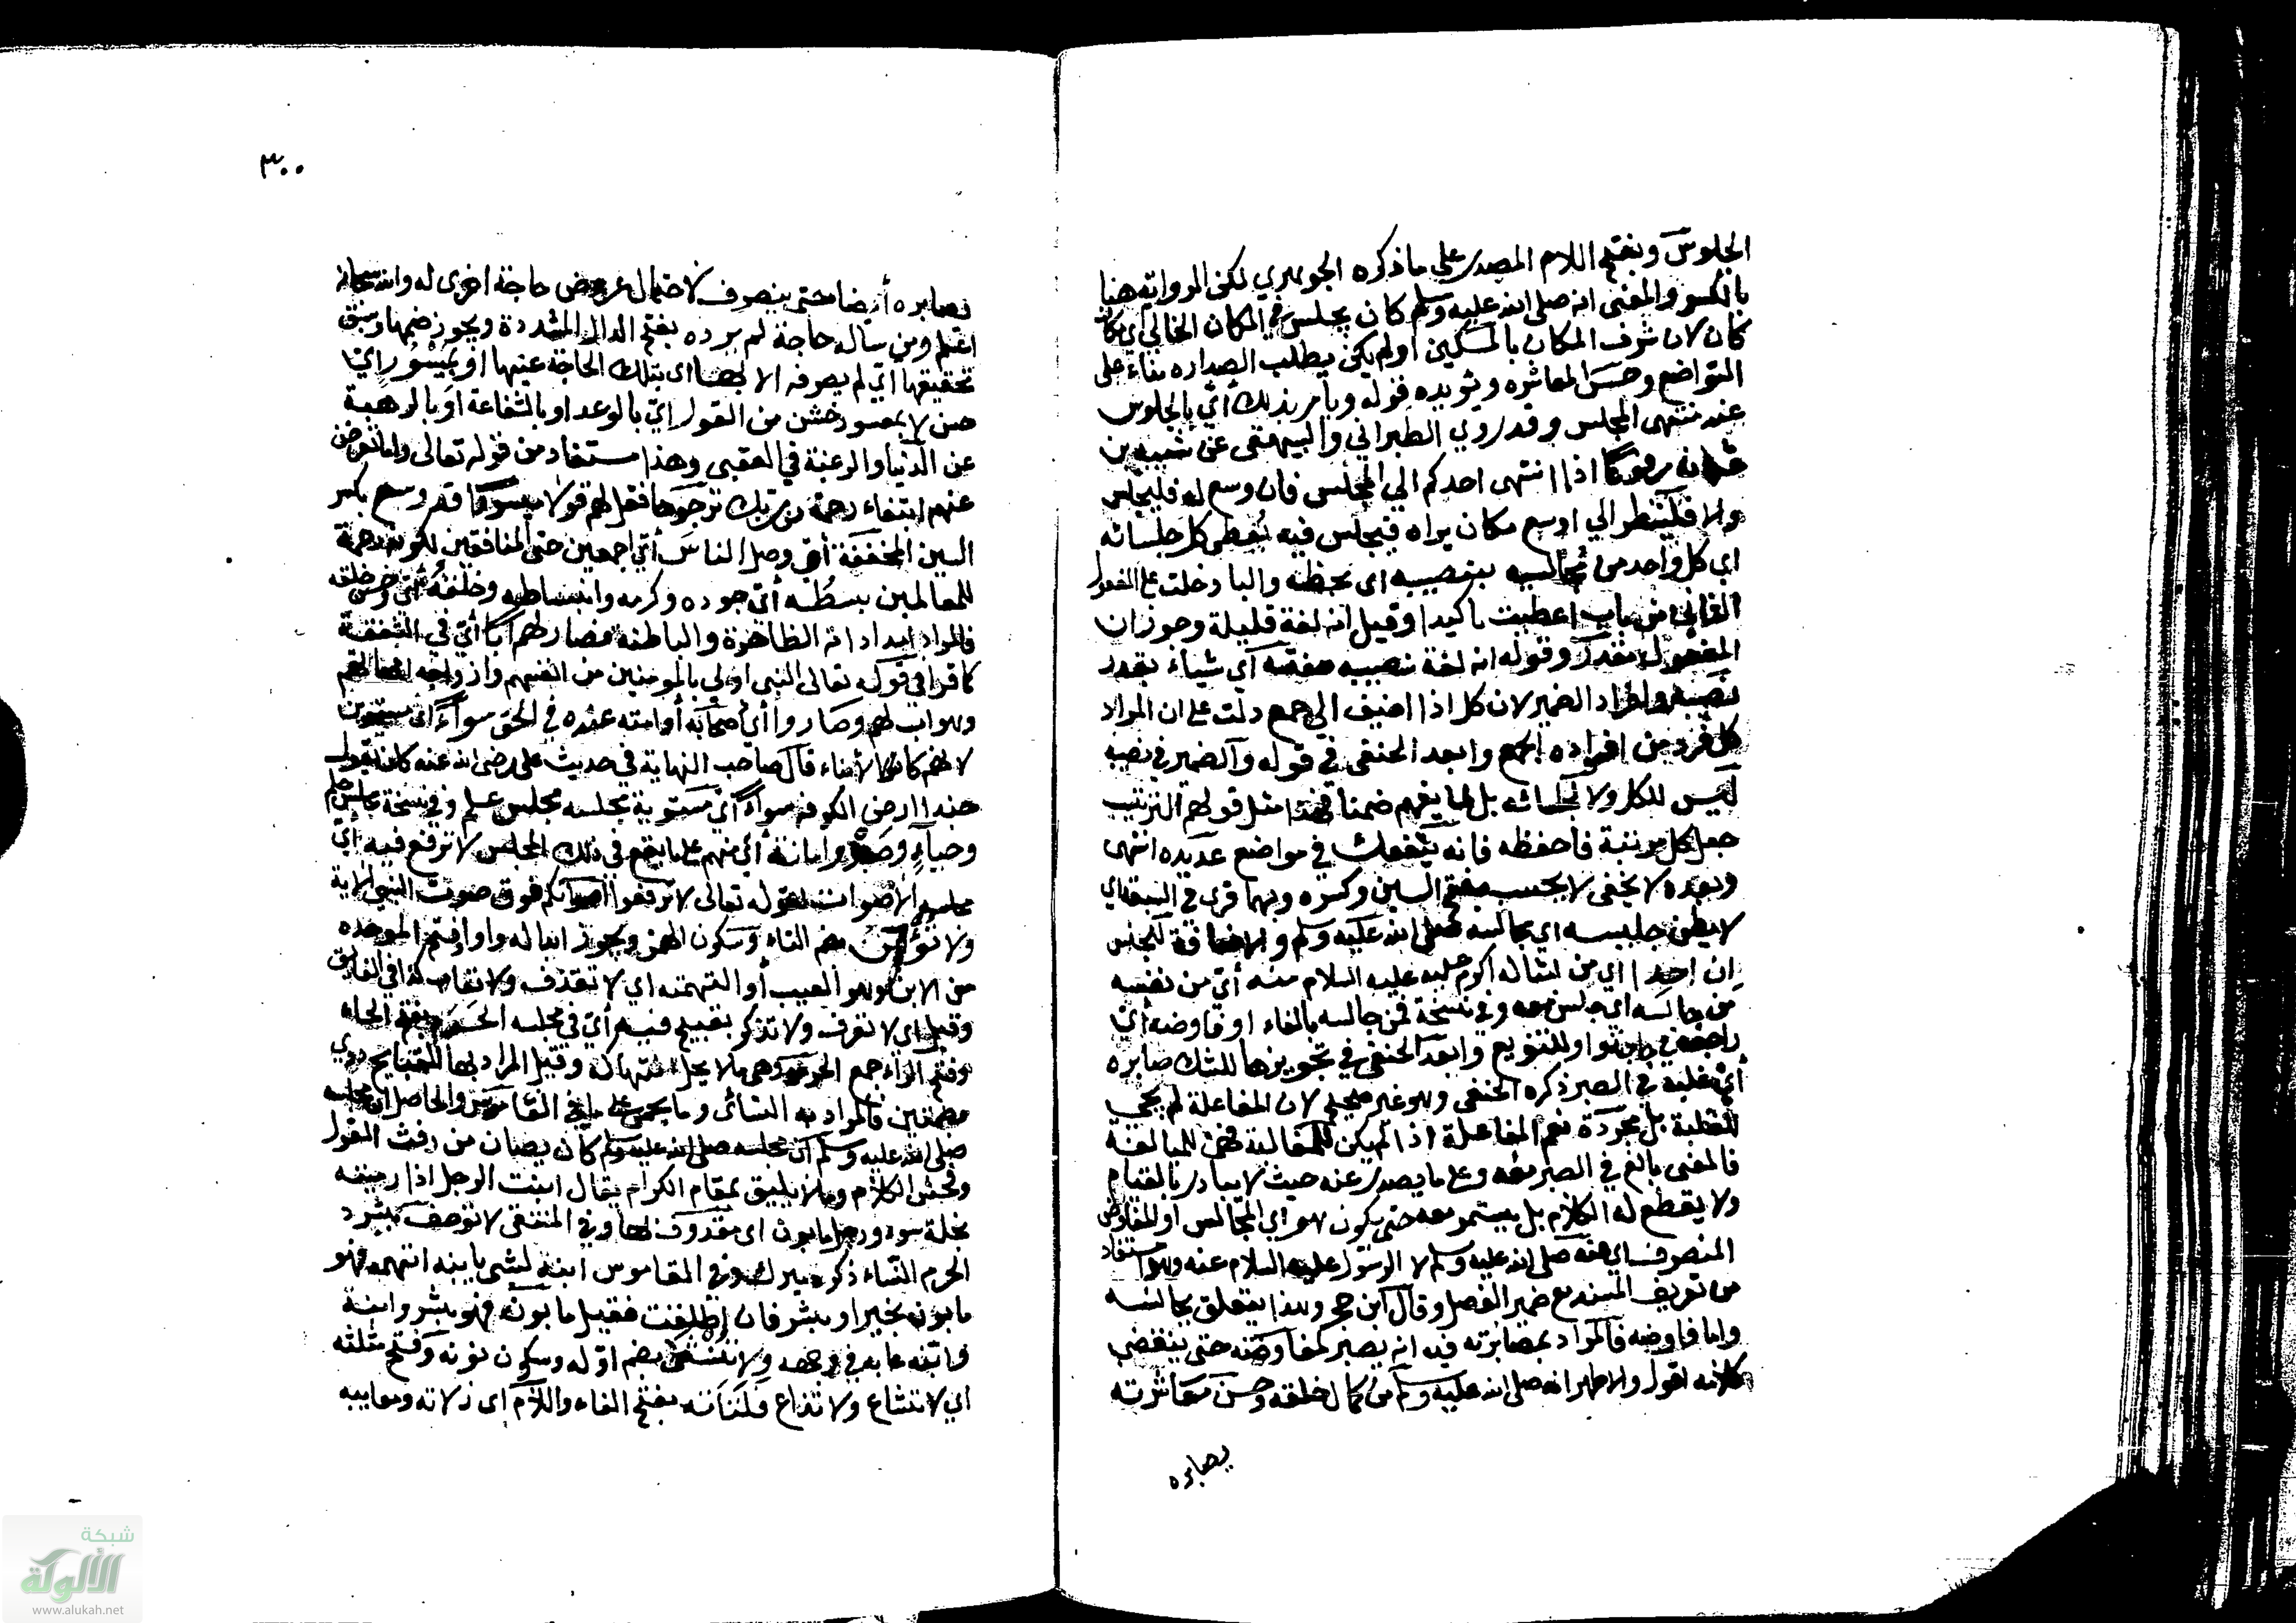 الجلوس وبفتح اللام المصدر على ما ذكره الجوهري لكن الرواية هنا
بالكسر والمعنى انه صلى الله عليه وسلم كان يجلس في المكان الخالي اي مكان
كان لان شرف المكان بالمكين اولم يكن يطلب الصداره بناء على
التواضع وحسن المعاشره ويؤيده قوله ويأمر بذلك أي بالجلوس
عند منتهى المجلس وقد روي الطبراني والبيهقي عن شيبه بن
عثمان مرفوعا اذا انتهى احدكم الي المجلس فان وسع له فليجلس
والا فلينظر الي اوسع مكان يراه فيجلس فيه يعطى كل جلسائه
اي كل واحد من مجالسيه بنصيبه اى بحظه والبا دخلت على المفعول
الثاني من باب اعطيت تاكيدا وقيل انه لغة قليلة وجوز ان
المفعول مقدر وقوله انه لغة نصيبه صفته أي شياء بقدر
نصيبه وافراد الضمير لان كل اذا اضيف الي جمع دلت على ان المراد
كل فرد من افراده الجمع وابعد الحنفى في قوله وآلضمير في نصيبه
ليس للكل ولا لجلسائه بل لما يفهم ضمنا فهذا مثل قولهم الترتيب
جعل كل مرتبة فاحفظه فانه ينفعك في مواضع عديده انتهى
وبعده لا يخفى لا يحسب بفتح السين وكسره وبهما قرى في السبع اي
لا يظن جليسه اي مجالسه صلى الله عليه وسلم والاضافة للجنس
ان احدا اي من امثاله اكرم عليه عليه السلام منه أي من نفسه
من جالسه اى جلس معه وفي نسخة فمن جالسه بالفاء او فاوضه أي
راجعه في واو للتنويع وابعد الحنفى في تجويزها للشك صابره
أي غلبه في الصبر ذكره الحنفى وهو غير صحيح لان المفاعلة لم يجى
للغلبة بل مجردة نعم المفاعلة اذا لم يكن للمغالبة فهى للمبالغة
فالمعنى بالغ في الصبر معه وعلى ما يصدر عنه حيث لا يبادر بالقيام
ولا يقطع له الكلام بل يستمر معه حتى يكون هو اي المجالس او المفاوض
المنصرف اي عنه صلى الله عليه وسلم لا الرسول عليه السلام عنه وهو مستفاد
من تعريف المسند مع ضمير الفصل وقال ابن حجر وهذا يتعلق بجالسه
واما فاوضه فالمراد بمصابرته فيه انه يصبر لمفاوضته حتى ينقضي
كلامه اقول والاظهر انه صلى الله عليه وسلم من كمال خلقه وحسن معاشرته
يصابره
٣٠٠
يصابره أيضا حتى ينصرف لاحتمال عروض حاجة اخرى له والله سبحانه
اعلم ومن سأله حاجة لم يرده بفتح الدال المشددة ويجوز ضمها وسبق
تحقيقها اي لم يصرفه الا بها اى بتلك الحاجة عينها او بميسور اي
حسن لا بمعسور خشن من القول اي بالوعد او بالشفاعة او بالرهبة
عن الدنيا والرغبة في العقبى وهذا مستفاد من قوله تعالى واما تعرضن
عنهم ابتغاء رحمة من ربك ترجوها فقل لهم قولا ميسورا قد وسع بكسر
السين المخففة أي وصل الناس أي اجمعين حتى المنافقين لكونه رحمة
للعالمين بسطه أي جوده وكرمه وانبساطه وخلقه أي وحسن خلقه
فالمراد امداداته الظاهرة والباطنة فصار لهم أبا أي في الشفقة
كما قرا في قوله تعالى النبي اولي بالمومنين من انفسهم وازواجه امهاتهم
وهو اب لهم وصاروا أي أصحابه أو امته عنده في الحق سواء اى مستوين
لانهم كانوا كالابناء قال صاحب النهاية في حديث على رضى الله عنه كان يقول
حبذا ارض الكوفه سواء أي مستوية مجلسه مجلس علم وفي نسخة مجلس حلم
وحياء وصبر وامانة أي منهم على ما يقع في ذلك المجلس لا ترفع فيه اي
مجلسه الاصوات لقوله تعالى لا ترفعوا اصواتكم فوق صوت النبي الاية
ولا تؤبن بضم التاء وسكون الهمز ويجوز ابداله واوا وفتح الموحده
من الابن وهو العيب أو التهمة اي لا تقذف ولا تعاب كذا في الفايق
وقيل اي لا تعرف ولا تذكر بقبيح فيه أي في مجلسه الحرم بضم الحاء
وفتح الراء جمع الحرمة وهى ما لا يحل انتهاكه وقيل المراد بها القبايح روي
بضمتين فالمراد به النسائى وما يحمى على ما في القاموس والحاصل ان مجلسه
صلى الله عليه وسلم ان مجلسه صلى الله عليه وسلم كان يصان من رفث القول
وفحش الكلام وما لا يليق بمقام الكرام يقال ابنت الرجل اذا رميته
بخلة سوء ورجل مابون اى مقذوف بها وفي المنتقى لا توصف بشر د
الحرم النساء ذكره ميرك وفي القاموس ابنه لشى يابنه اتهمه فهو
مابون بخير او بشر فان اطلقت فقيل مابون فهو بشر وابنة
وابنه عابه في وجهه ولا تنثى بضم اوله وسكون نونه وفتح مثلثه
اي لا تشاع ولا تذاع فلتاته بفتح الفاء واللام اى زلاته ومعايبه
شبكة
الألوكة
www.alukah.net